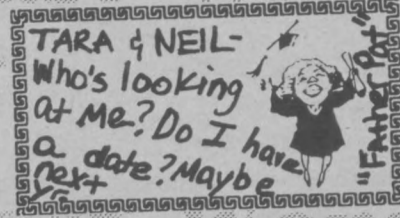 TARA & NEIL-
Who's looking
at Me? Do I have
a date? Maybe
next
yr
"Father Pat"